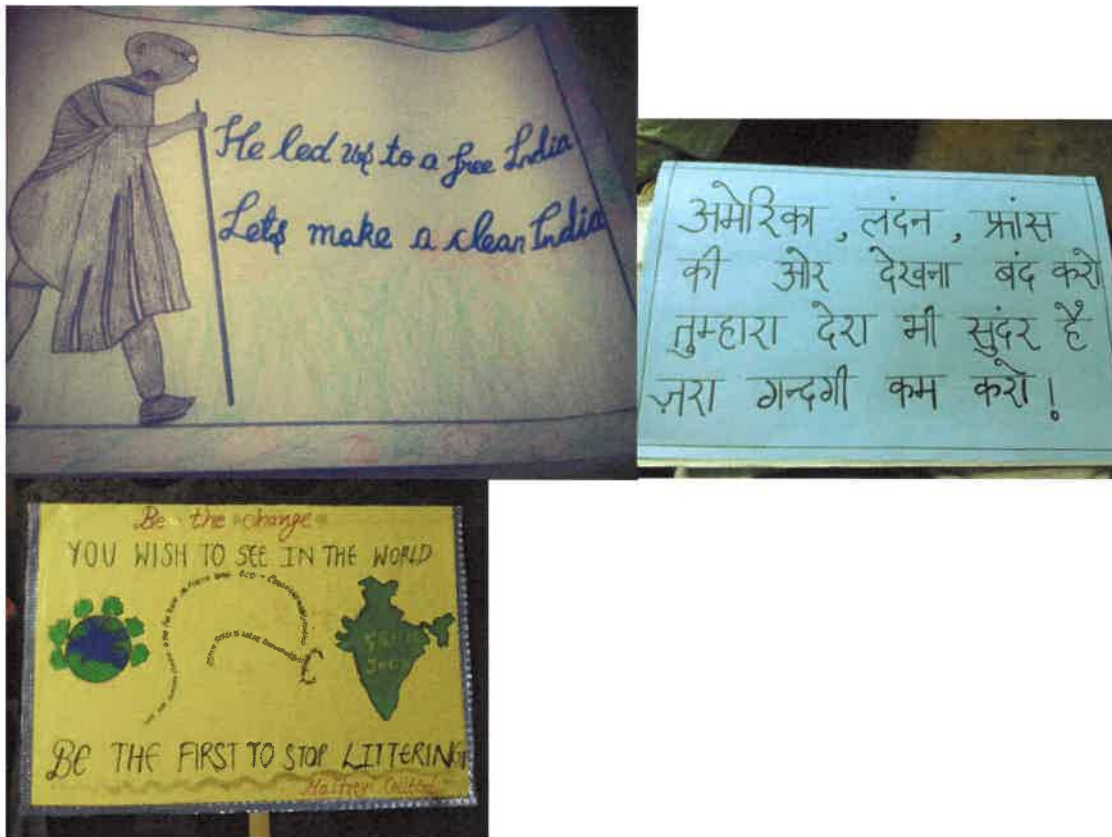 He led us to a free India
Lets make a clean India
अमेरिका, लंदन, फ्रांस
की ओर देखना बंद करो
तुम्हारा देश भी सुंदर है
ज़रा गन्दगी कम करो!
Be the change
YOU WISH TO SEE IN THE WORLD
BE THE FIRST TO STOP LITTERING